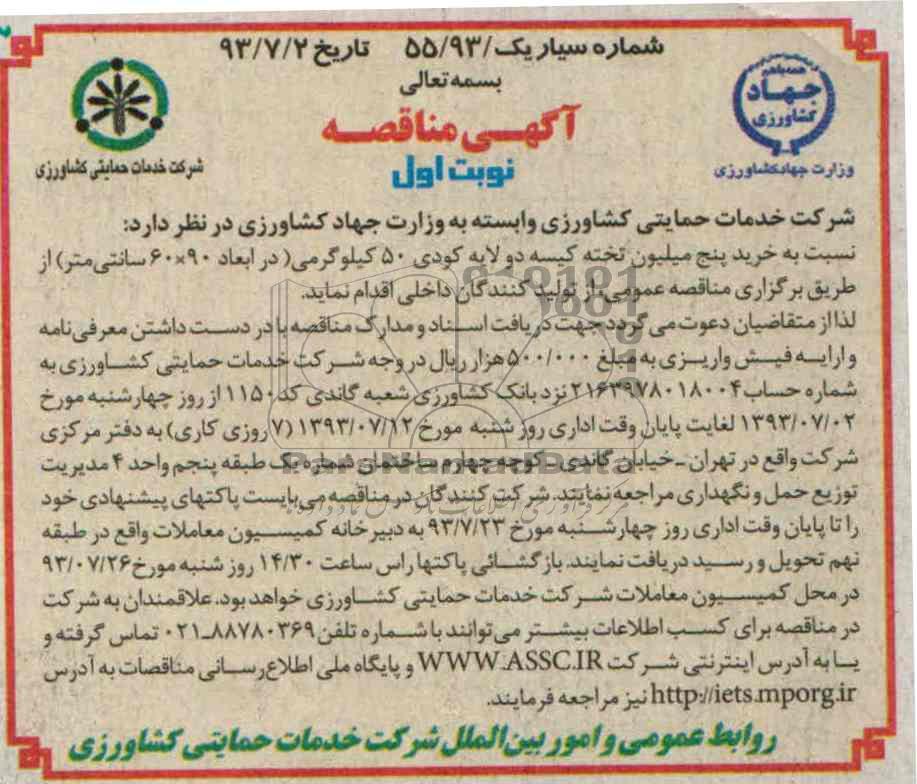 شماره سیار یک/۵۵/۹۳ تاریخ ۹۳/۷/۲
بسمه تعالی
همه با هم
جهاد
کشاورزی
وزارت جهادکشاورزی
آگهی مناقصه
نوبت اول
شرکت خدمات حمایتی کشاورزی
شرکت خدمات حمایتی کشاورزی وابسته به وزارت جهاد کشاورزی در نظر دارد:
نسبت به خرید پنج میلیون تخته کیسه دو لایه کودی ۵۰ کیلوگرمی( در ابعاد ۹۰×۶۰ سانتی‌متر) از
طریق برگزاری مناقصه عمومی از تولید کنندگان داخلی اقدام نماید.
لذا از متقاضیان دعوت می گردد جهت دریافت اسناد و مدارک مناقصه با در دست داشتن معرفی‌نامه
و ارایه فیش واریزی به مبلغ ۵۰۰/۰۰۰ هزار ریال در وجه شرکت خدمات حمایتی کشاورزی به
شماره حساب ۲۱۶۳۹۷۸۰۱۸۰۰۴ نزد بانک کشاورزی شعبه گاندی کد ۱۱۵۰ از روز چهارشنبه مورخ
۱۳۹۳/۰۷/۰۲ لغایت پایان وقت اداری روز شنبه مورخ ۱۳۹۳/۰۷/۱۲ (۷ روزی کاری) به دفتر مرکزی
شرکت واقع در تهران -خیابان گاندی - کوچه چهارم ساختمان شماره یک طبقه پنجم واحد ۴ مدیریت
توزیع حمل و نگهداری مراجعه نمایند. شرکت کنندگان در مناقصه می‌بایست پاکتهای پیشنهادی خود
را تا پایان وقت اداری روز چهارشنبه مورخ ۹۳/۷/۲۳ به دبیرخانه کمیسیون معاملات واقع در طبقه
نهم تحویل و رسید دریافت نمایند. بازگشائی پاکتها راس ساعت ۱۴/۳۰ روز شنبه مورخ ۹۳/۰۷/۲۶
در محل کمیسیون معاملات شرکت خدمات حمایتی کشاورزی خواهد بود. علاقمندان به شرکت
در مناقصه برای کسب اطلاعات بیشتر می‌توانند با شماره تلفن ۸۸۷۸۰۳۶۹-۰۲۱ تماس گرفته و
یا به آدرس اینترنتی شرکت WWW.ASSC.IR و پایگاه ملی اطلاع‌رسانی مناقصات به آدرس
http://iets.mporg.ir نیز مراجعه فرمایند.
روابط عمومی و امور بین‌الملل شرکت خدمات حمایتی کشاورزی